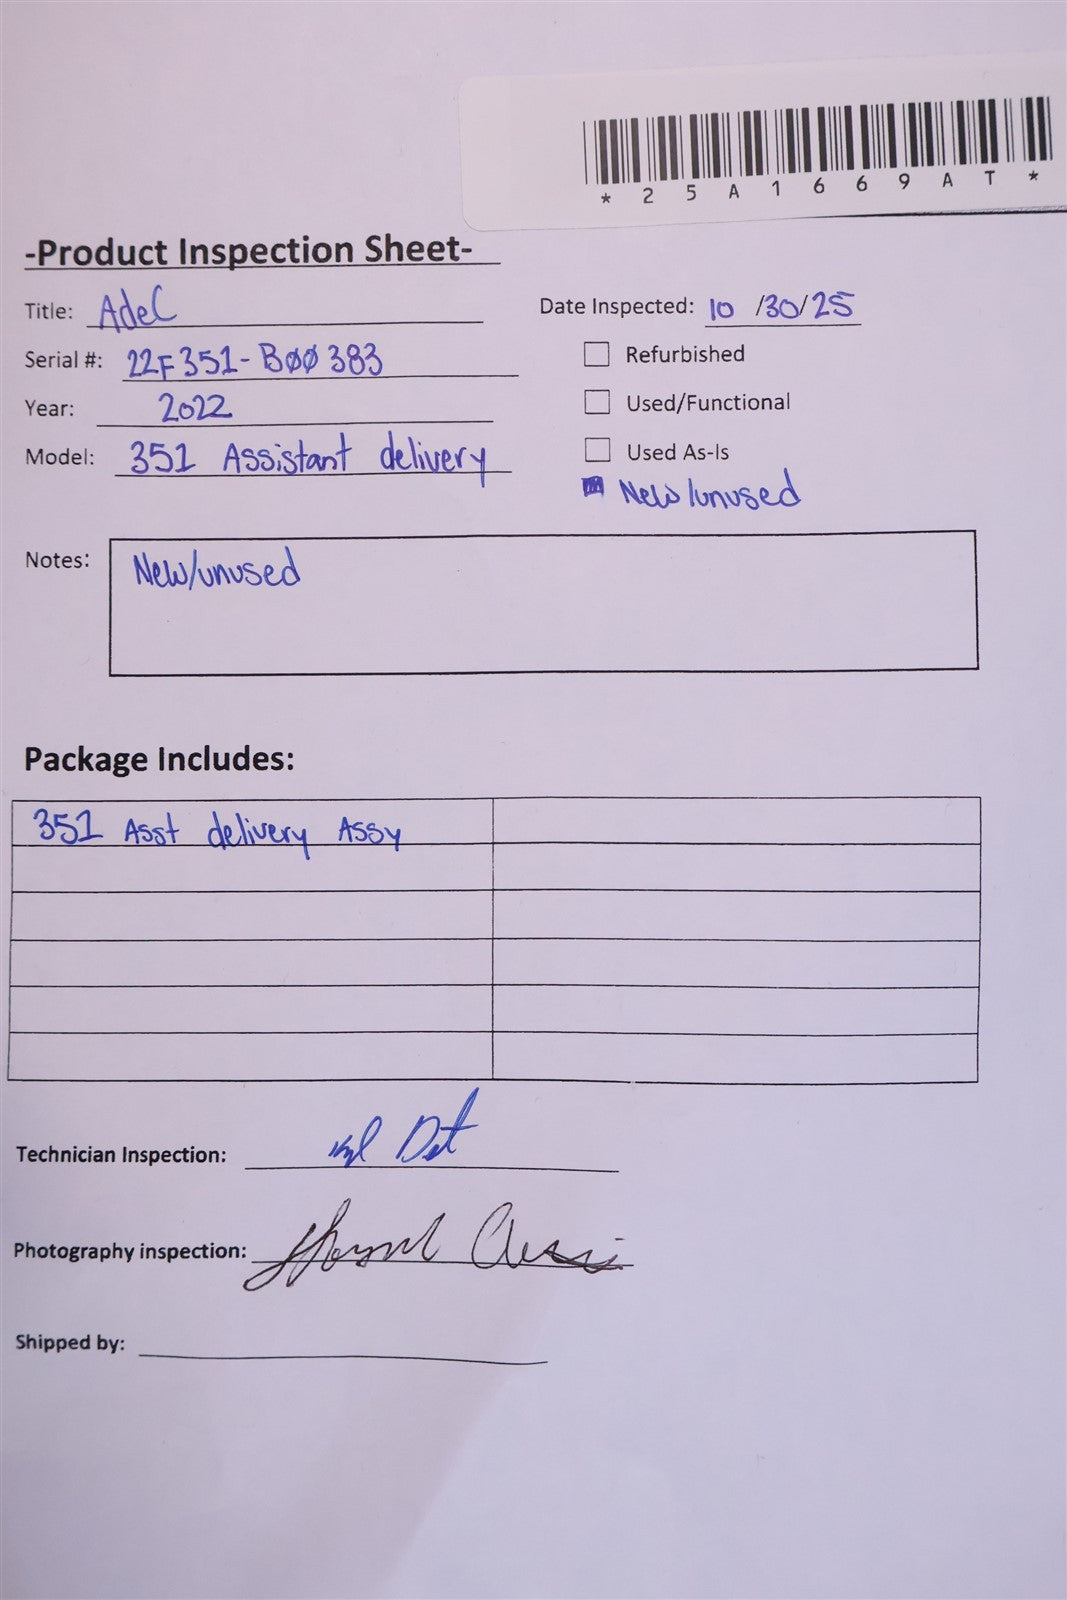 * 2 5 A 1 6 6 9 A T *
-Product Inspection Sheet-
Title: AdeC
Date Inspected: 10 /30/25
Serial #: 22F351-B00383
Refurbished
Year: 2022
Used/Functional
Model: 351 Assistant delivery
Used As-Is
New/unused
Notes: New/unused
Package Includes:
351 Asst delivery Assy
Technician Inspection:
Photography inspection:
Shipped by: